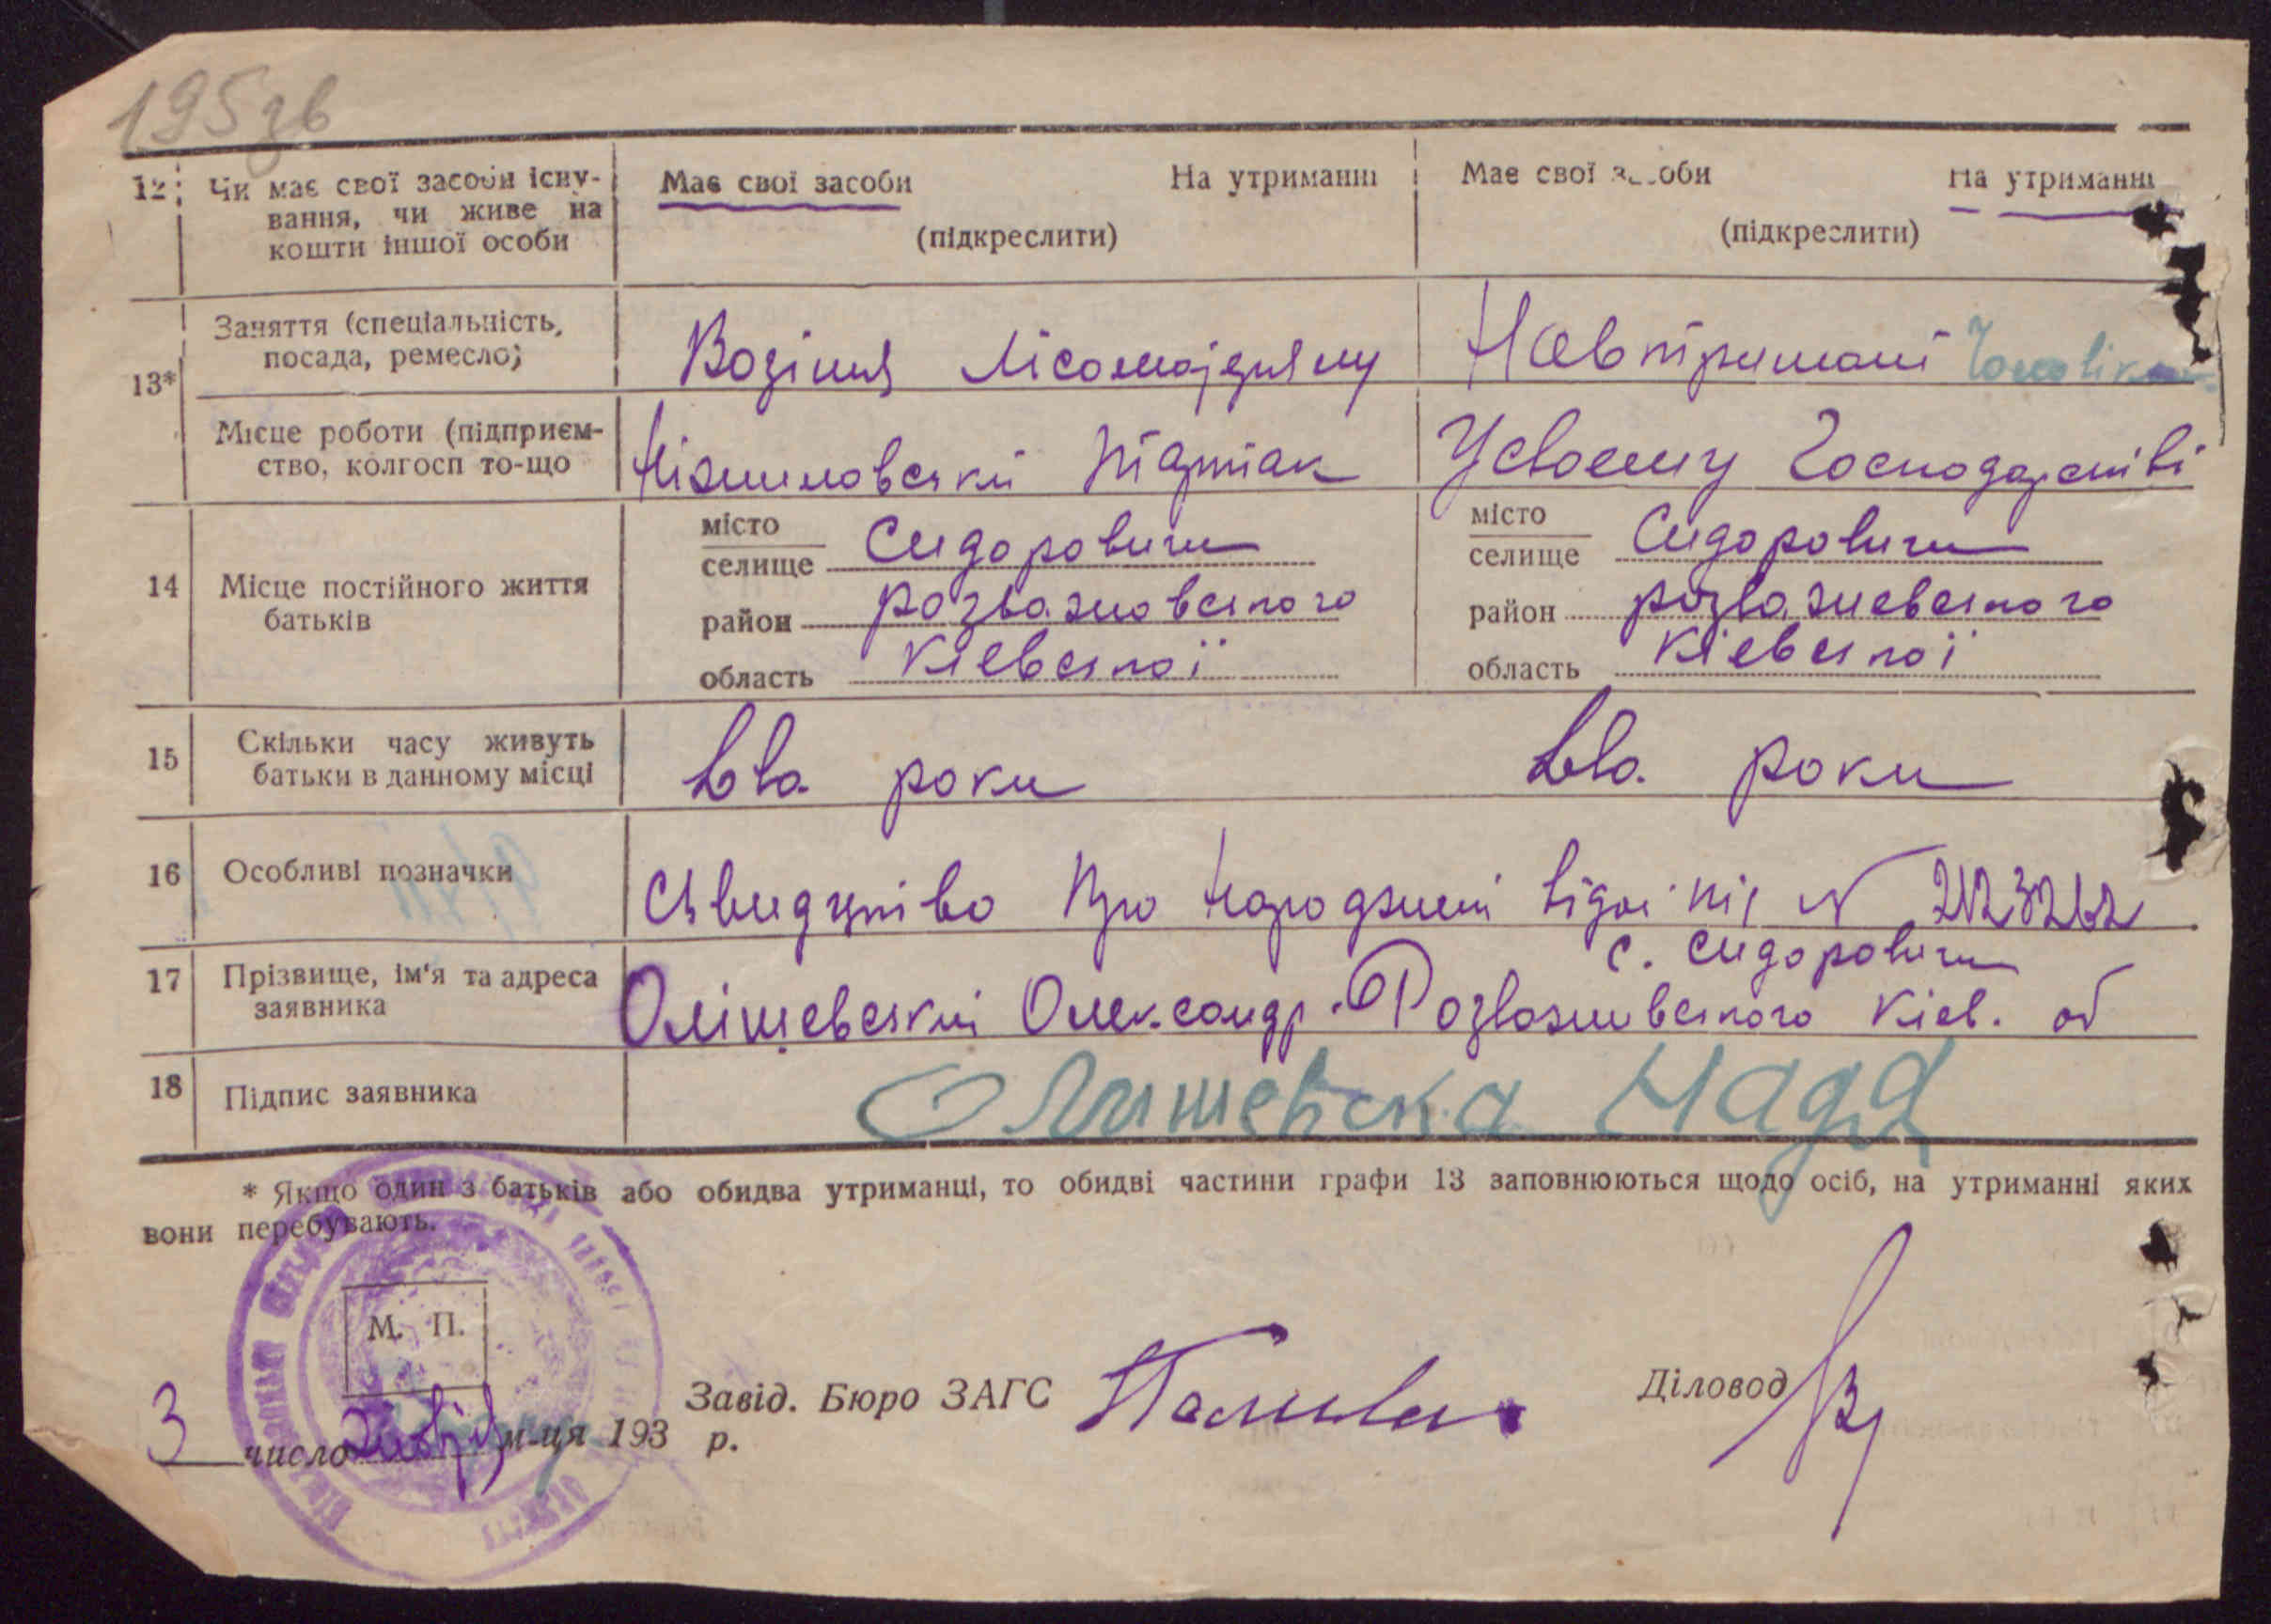 195зв
12 Чи має свої засоби існу-
вання, чи живе на
кошти іншої особи
Має свої засоби На утриманні
(підкреслити)
Має свої засоби На утриманні
(підкреслити)
13*
Заняття (спеціальність,
посада, ремесло)
Возіння
Навтримані
Місце роботи (підприєм-
ство, колгосп то-що
тартак
Усвоему Господарстві
14 Місце постійного життя
батьків
місто
селище Сидоровичи
район Розважовського
область Кіевської
місто
селище Сидоровичи
район розважевського
область Кіевської
15 Скільки часу живуть
батьки в данному місці
Два роки Два роки
16 Особливі позначки
Про народжені N
17 Прізвище, ім'я та адреса
заявника
с. Сидоровичи
Олішевский Олександр Розважевського Кіев. об
18 Підпис заявника
Олишевска Надя
* Якщо один з батьків або обидва утриманці, то обидві частини графи 13 заповнюються щодо осіб, на утриманні яких
вони перебувають.
М. П.
3 число м-ця 193 р.
Завід. Бюро ЗАГС
Діловод